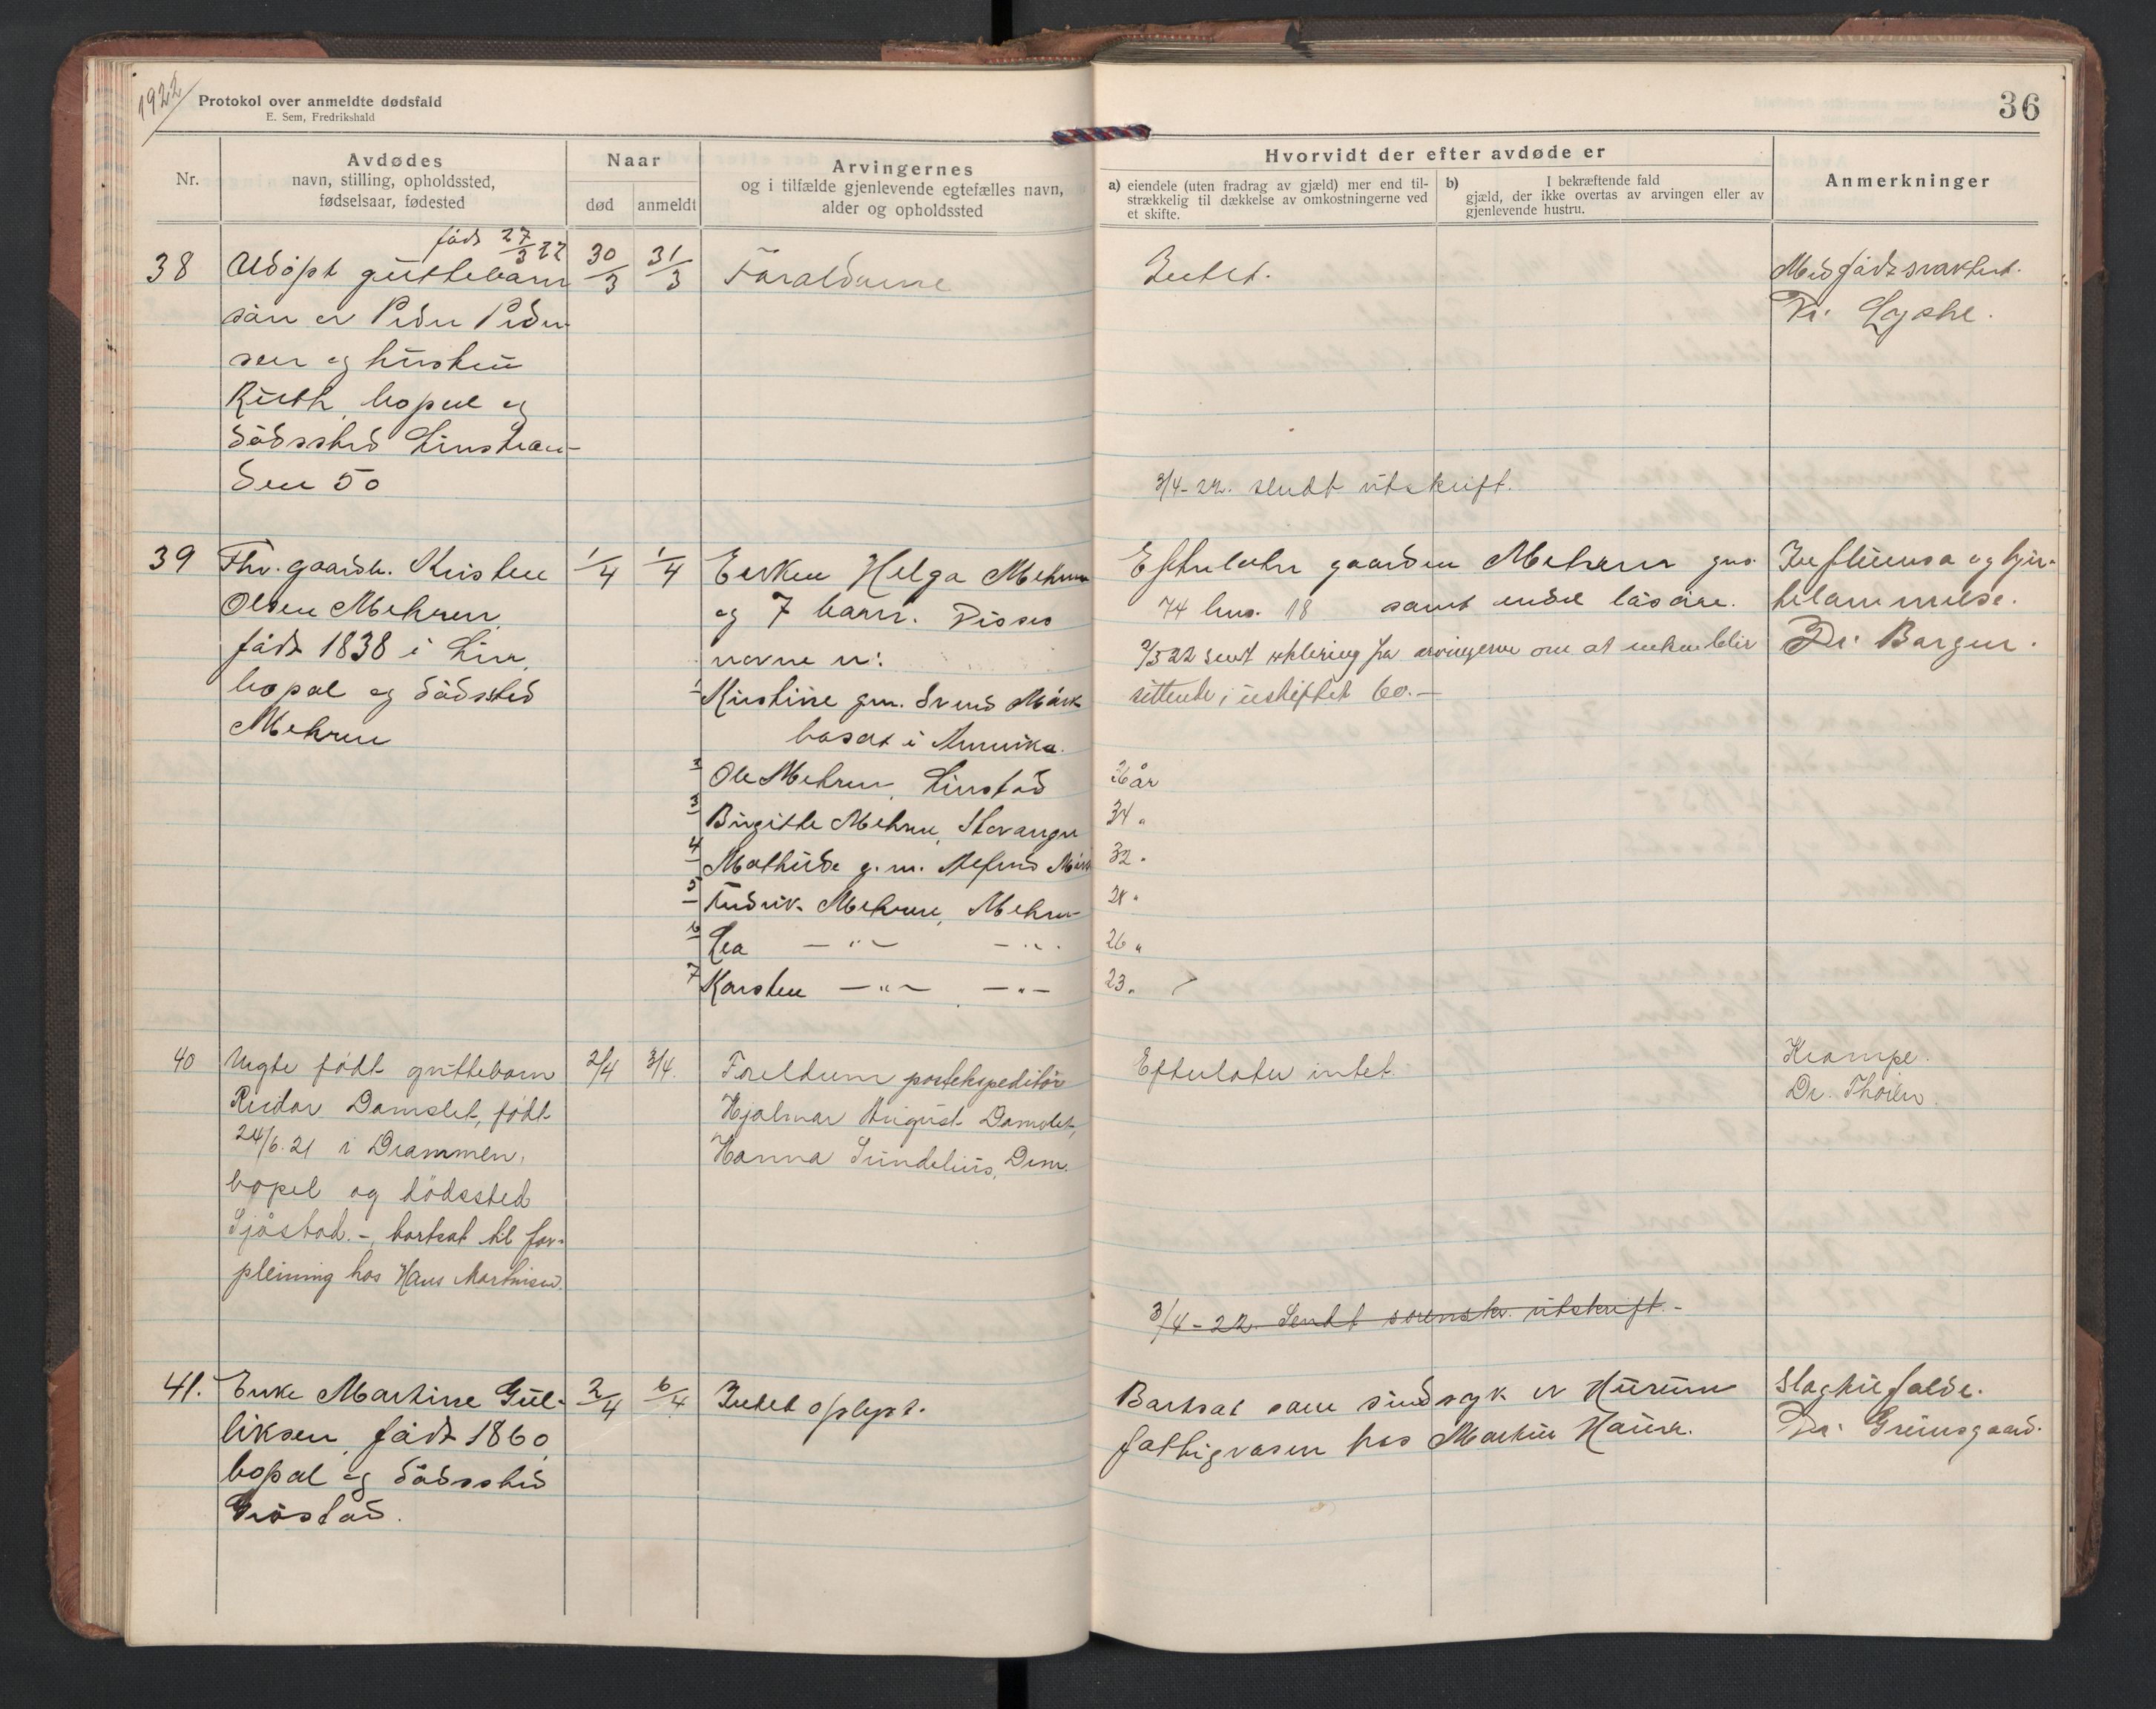 1922
Protokol over anmeldte dødsfald
E. Sem, Fredrikshald
36
Nr.
Avdødes
navn, stilling, opholdssted,
fødselsaar, fødested
Naar
død
anmeldt
Arvingernes
og i tilfælde gjenlevende egtefælles navn,
alder og opholdssted
Hvorvidt der efter avdøde er
a) eiendele (uten fradrag av gjæld) mer end til-
strækkelig til dækkelse av omkostningerne ved
et skifte.
b) I bekræftende fald
gjæld, der ikke overtas av arvingen eller av
gjenlevende hustru.
Anmerkninger
født 27/3 22
38 Udøpt guttebarn 30/3 31/3 Forældrene Intet. Medfødt svakhet.
søn av Peder Peder- Dr. Lyche.
sen og hustru
Ruth, bopæl og
dødssted Linstran-
den 50
3/4-22. sendt utskrift.
39 Fhv. gaardb. Kristen 1/4 1/4 Enken Helga Mehren Efterlater gaarden Mehren gno. Influensa og hjer-
Olsen Mehren, og 7 barn. Disses 74 bno. 18 samt endel løsøre. telammelse.
født 1838 i Lier, navne er: 2/5 22 sent erklæring fra arvingerne om at enken blir Dr. Borgen.
bopæl og dødssted 1 Kristine gm. Svend Mørk sittende i uskiftet bo.-
Mehren bosat i Amerika.
2 Ole Mehren, Linstad 36 år
3 Birgitte Mehren, Stavanger 34 "
4 Mathilde g.m. Alfred Mørk 32 "
5 Fredrik Mehren, Mehren 28 "
6 Lea -"- -"- 26 "
7 Karsten -"- -"- 23 "
40 Uegte født guttebarn 2/4 3/4. Foreldrem postekspeditør Efterlater intet. Krampe.
Reidar Damslet, født Hjalmar August Damslet, Dr. Thorén.
24/6.21 i Drammen, Hanna Sundelius, Drm.
bopel og dödssted
Sjåstad. -, bortsat til for-
pleining hos Hans Martinsen.
3/4-22. Sendt sorenskr. utskrift.-
41. Enke Martine Gul- 2/4 6/4 Intet oplyst. Bortsat som sindssyk av Hurum Slagtilfælde.
liksen, født 1860, fattigvæsen hos Martin Dr. Grimsgaard.
bopæl og dødssted